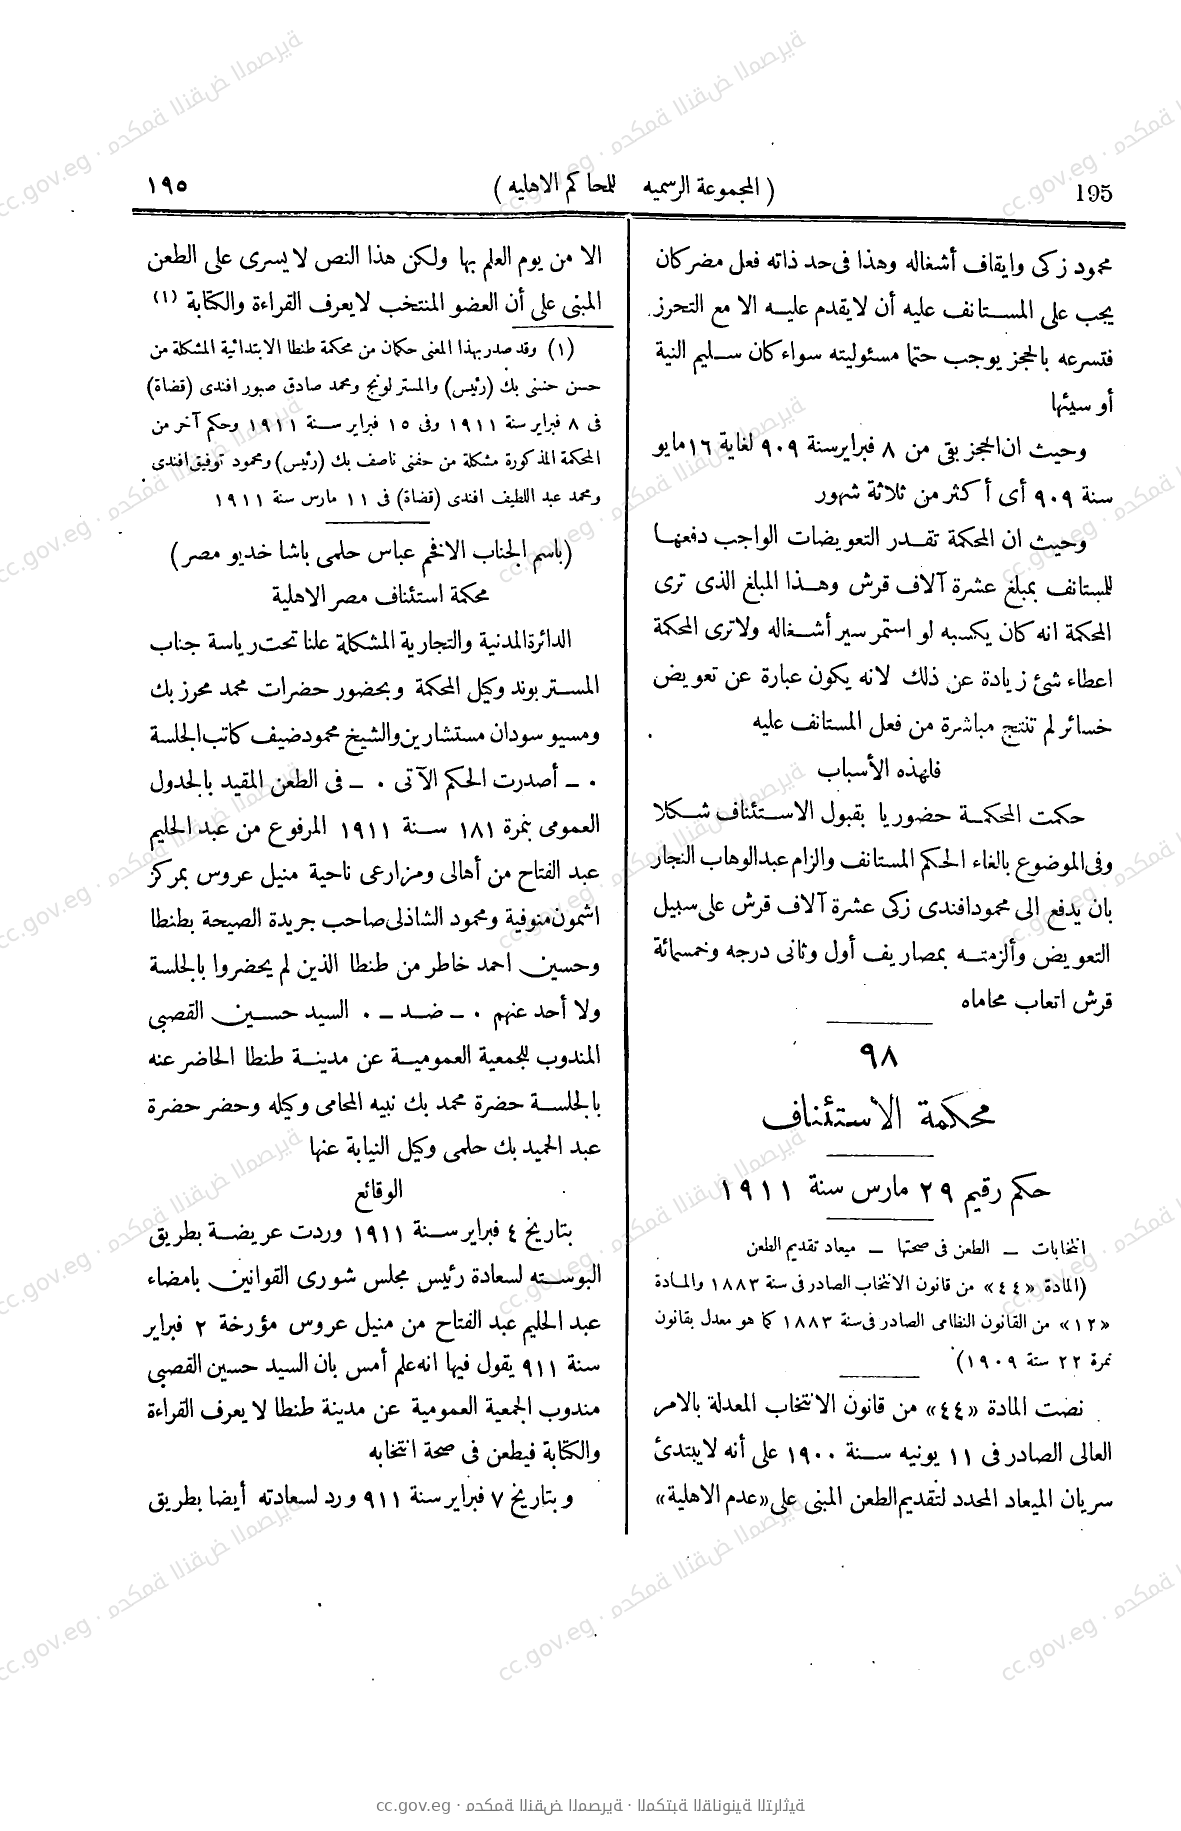 195 (المجموعة الرسميه للمحاكم الاهليه) ١٩٥
محمود زكى وايقاف أشغاله وهذا فى حد ذاته فعل مضر كان
يجب على المستانف عليه أن لا يقدم عليه الا مع التحرز
فتسرعه بالحجز يوجب حتما مسئوليته سواء كان سليم النية
أو سيئها
وحيث ان الحجز بقى من ٨ فبراير سنة ٩٠٩ لغاية ١٦ مايو
سنة ٩٠٩ أى أكثر من ثلاثة شهور
وحيث ان المحكمة تقدر التعويضات الواجب دفعها
للمستانف بمبلغ عشرة آلاف قرش وهذا المبلغ الذى ترى
المحكمة انه كان يكسبه لو استمر سير أشغاله ولا ترى المحكمة
اعطاء شئ زيادة عن ذلك لانه يكون عبارة عن تعويض
خسائر لم تنتج مباشرة من فعل المستانف عليه
فلهذه الأسباب
حكمت المحكمة حضوريا بقبول الاستئناف شكلا
وفى الموضوع بالغاء الحكم المستانف والزام عبد الوهاب النجار
بان يدفع الى محمود افندى زكى عشرة آلاف قرش على سبيل
التعويض وألزمته بمصاريف أول وثانى درجه وخمسمائة
قرش اتعاب محاماه
٩٨
محكمة الاستئناف
حكم رقيم ٢٩ مارس سنة ١٩١١
انتخابات — الطعن فى صحتها — ميعاد تقديم الطعن
(المادة «٤٤» من قانون الانتخاب الصادر فى سنة ١٨٨٣ والمادة
«١٢» من القانون النظامى الصادر فى سنة ١٨٨٣ كما هو معدل بقانون
نمرة ٢٢ سنة ١٩٠٩)
نصت المادة «٤٤» من قانون الانتخاب المعدلة بالامر
العالى الصادر فى ١١ يونيه سنة ١٩٠٠ على أنه لا يبتدئ
سريان الميعاد المحدد لتقديم الطعن المبنى على «عدم الاهلية»
الا من يوم العلم بها ولكن هذا النص لا يسرى على الطعن
المبنى على أن العضو المنتخب لا يعرف القراءة والكتابة (١)
(١) وقد صدر بهذا المعنى حكمان من محكمة طنطا الابتدائية المشكلة من
حسن حسنى بك (رئيس) والمستر لونج ومحمد صادق صبور افندى (قضاة)
فى ٨ فبراير سنة ١٩١١ وفى ١٥ فبراير سنة ١٩١١ وحكم آخر من
المحكمة المذكورة مشكلة من حفنى ناصف بك (رئيس) ومحمود توفيق افندى
ومحمد عبد اللطيف افندى (قضاة) فى ١١ مارس سنة ١٩١١
(باسم الجناب الافخم عباس حلمى باشا خديو مصر)
محكمة استئناف مصر الاهلية
الدائرة المدنية والتجارية المشكلة علنا تحت رياسة جناب
المستر بوند وكيل المحكمة وبحضور حضرات محمد محرز بك
ومسيو سودان مستشارين والشيخ محمود ضيف كاتب الجلسة
٠ — أصدرت الحكم الآتى ٠ — فى الطعن المقيد بالجدول
العمومى بنمرة ١٨١ سنة ١٩١١ المرفوع من عبد الحليم
عبد الفتاح من أهالى ومزارعى ناحية منيل عروس بمركز
اشمون منوفية ومحمود الشاذلى صاحب جريدة الصيحة بطنطا
وحسين احمد خاطر من طنطا الذين لم يحضروا بالجلسة
ولا أحد عنهم ٠ — ضد — ٠ السيد حسين القصبى
المندوب للجمعية العمومية عن مدينة طنطا الحاضر عنه
بالجلسة حضرة محمد بك نبيه المحامى وكيله وحضر حضرة
عبد الحميد بك حلمى وكيل النيابة عنها
الوقائع
بتاريخ ٤ فبراير سنة ١٩١١ وردت عريضة بطريق
البوسته لسعادة رئيس مجلس شورى القوانين بامضاء
عبد الحليم عبد الفتاح من منيل عروس مؤرخة ٢ فبراير
سنة ٩١١ يقول فيها انه علم أمس بان السيد حسين القصبى
مندوب الجمعية العمومية عن مدينة طنطا لا يعرف القراءة
والكتابة فيطعن فى صحة انتخابه
وبتاريخ ٧ فبراير سنة ٩١١ ورد لسعادته أيضا بطريق
cc.gov.eg · محكمة النقض المصرية · المكتبة القانونية التراثية